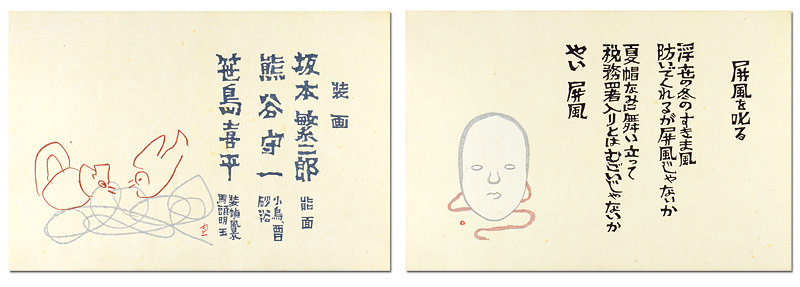 装画
坂本繁二郎 能面
熊谷守一
砂浴
笹島喜平
馬頭明王
屏風を叱る
浮世の冬のすきま風
防いでくれるが屏風じゃないか
夏帽なみに舞い立って
税務署入りとはむごいじゃないか
やい 屏風